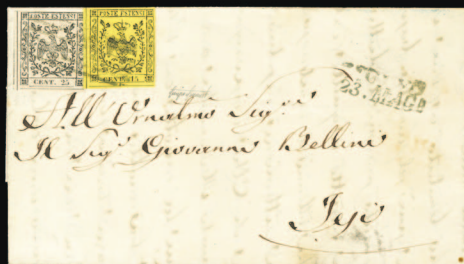 POSTE ESTENSI POSTE ESTENSI
CENT. 25 CENT. 15
23. MAGO
All' Ornatmo Sigre
Il Sigr Giovanni Bellini
Jesi